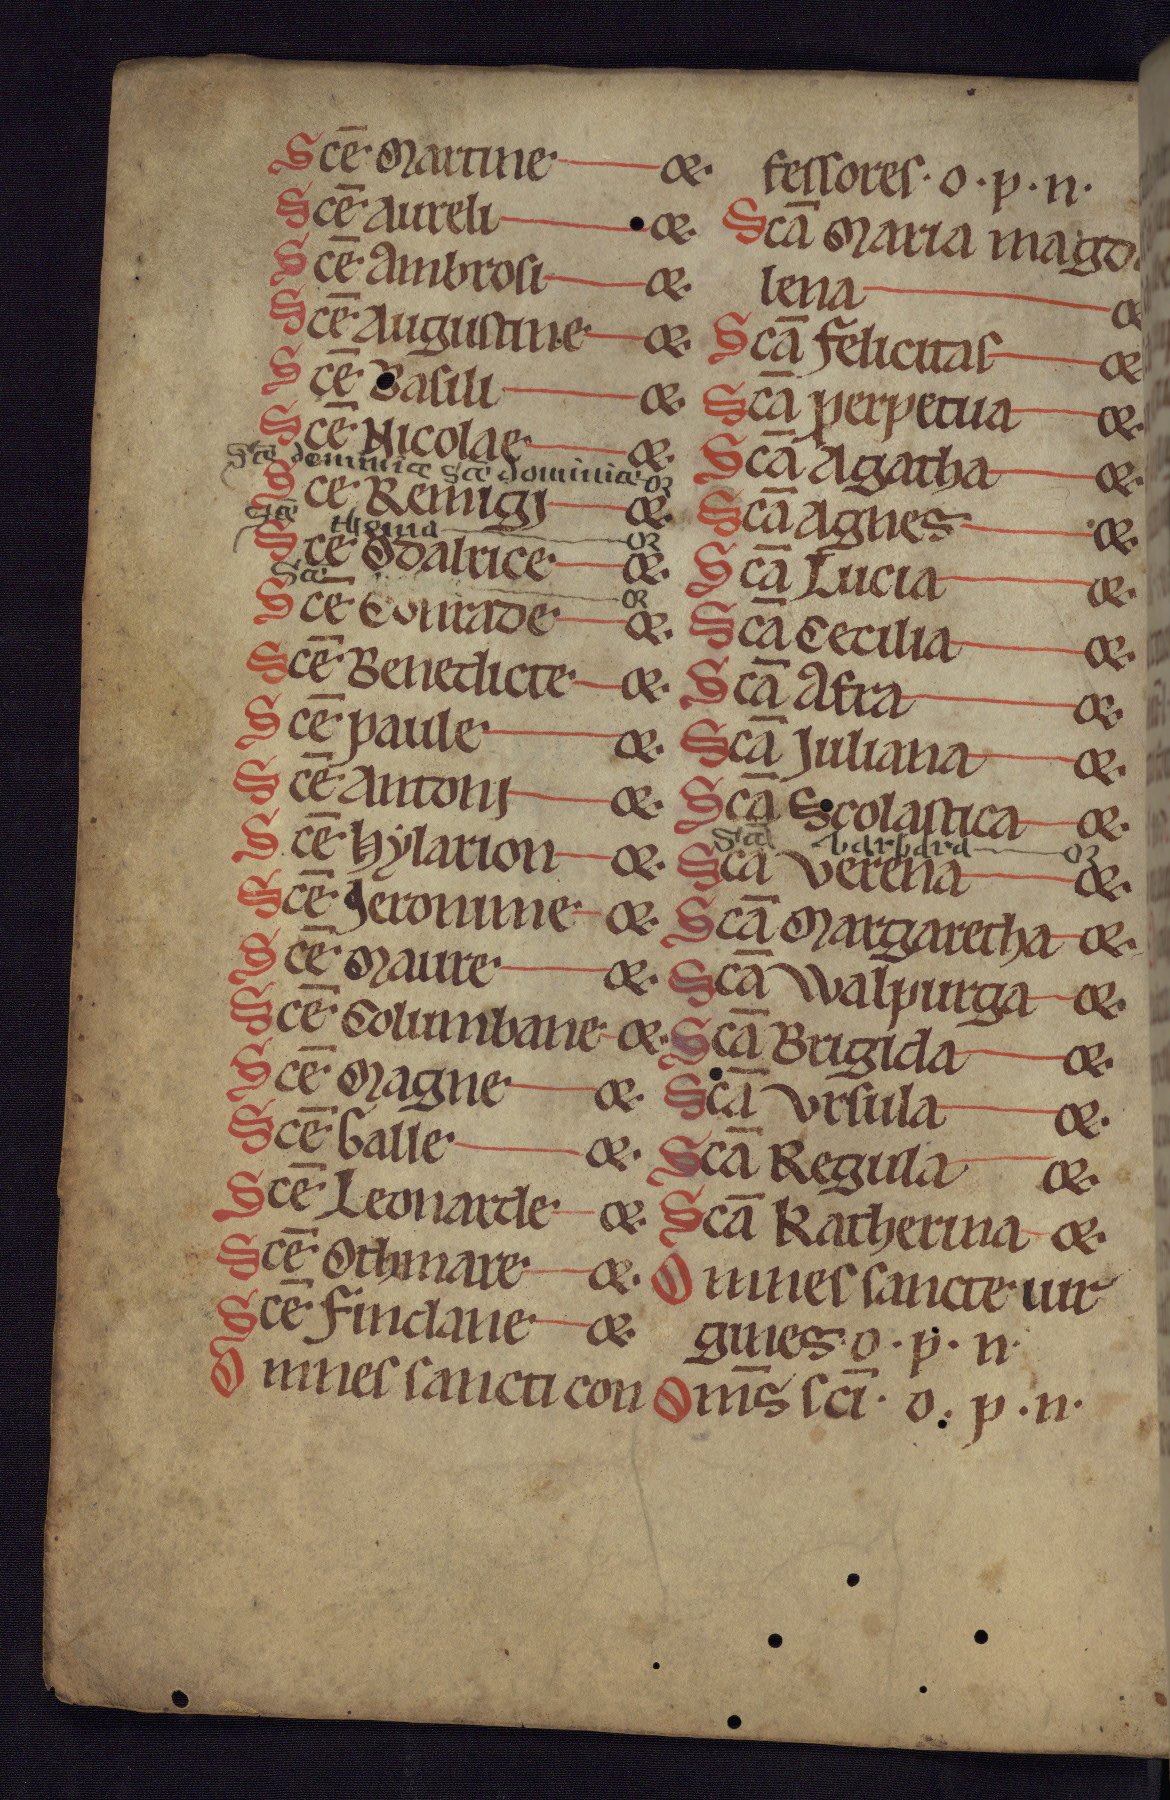 Scē Martine or.
Scē Aureli or.
Scē Ambrosi or.
Scē Augustine or.
Scē Basili or.
Scē Nicolae or.
Scē dominice Scē dominice or
Sce Remigi or.
Scē thoma or
Sce Odalrice or.
Sce or
Sce Conrade or.
Scē Benedicte or.
Scē paule or.
Scē Antonij or.
Scē hylarion or.
Scē Jeronime or.
Scē Maure or.
Scē Columbane or.
Scē Magne or.
Scē Galle or.
Scē Leonarde or.
Scē Othmare or.
Scē Findane or.
Omnes sancti con
fessores. o. p. n.
Scā Maria magda
lena or
Scā felicitas or
Scā perpetua or.
Scā Agatha or.
Scā Agnes or.
Scā Lucia or.
Scā Cecilia or.
Scā Afra or.
Scā Juliana or.
Scā Scolastica or.
Scā barbara or
Sca Verena or.
Scā Margaretha or.
Scā Walpurga or.
Scā Brigida or.
Scā Vrsula or.
Scā Regula or.
Scā Katherina or.
Omnes sancte uir
gines. o. p. n.
Om̄s sc̄i. o. p. n.